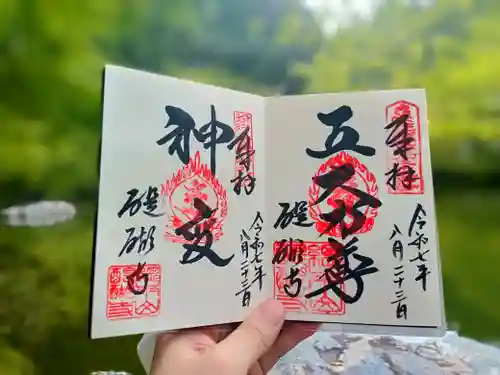 奉拝
令和七年
八月二十三日
五大力尊
醍醐寺
奉拝
令和七年
八月二十三日
神変
醍醐寺